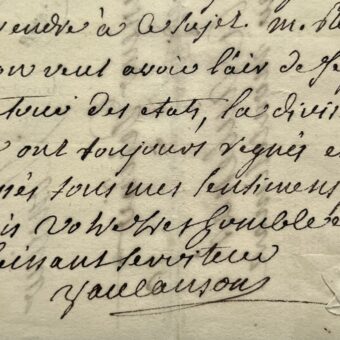 rendre à ce sujet. m.
on veut avoir l'air de
des etats, la divis
ont toujours regnés e
nés tous mes sentimens
votre tres humble
obeissant serviteur
Vaucanson